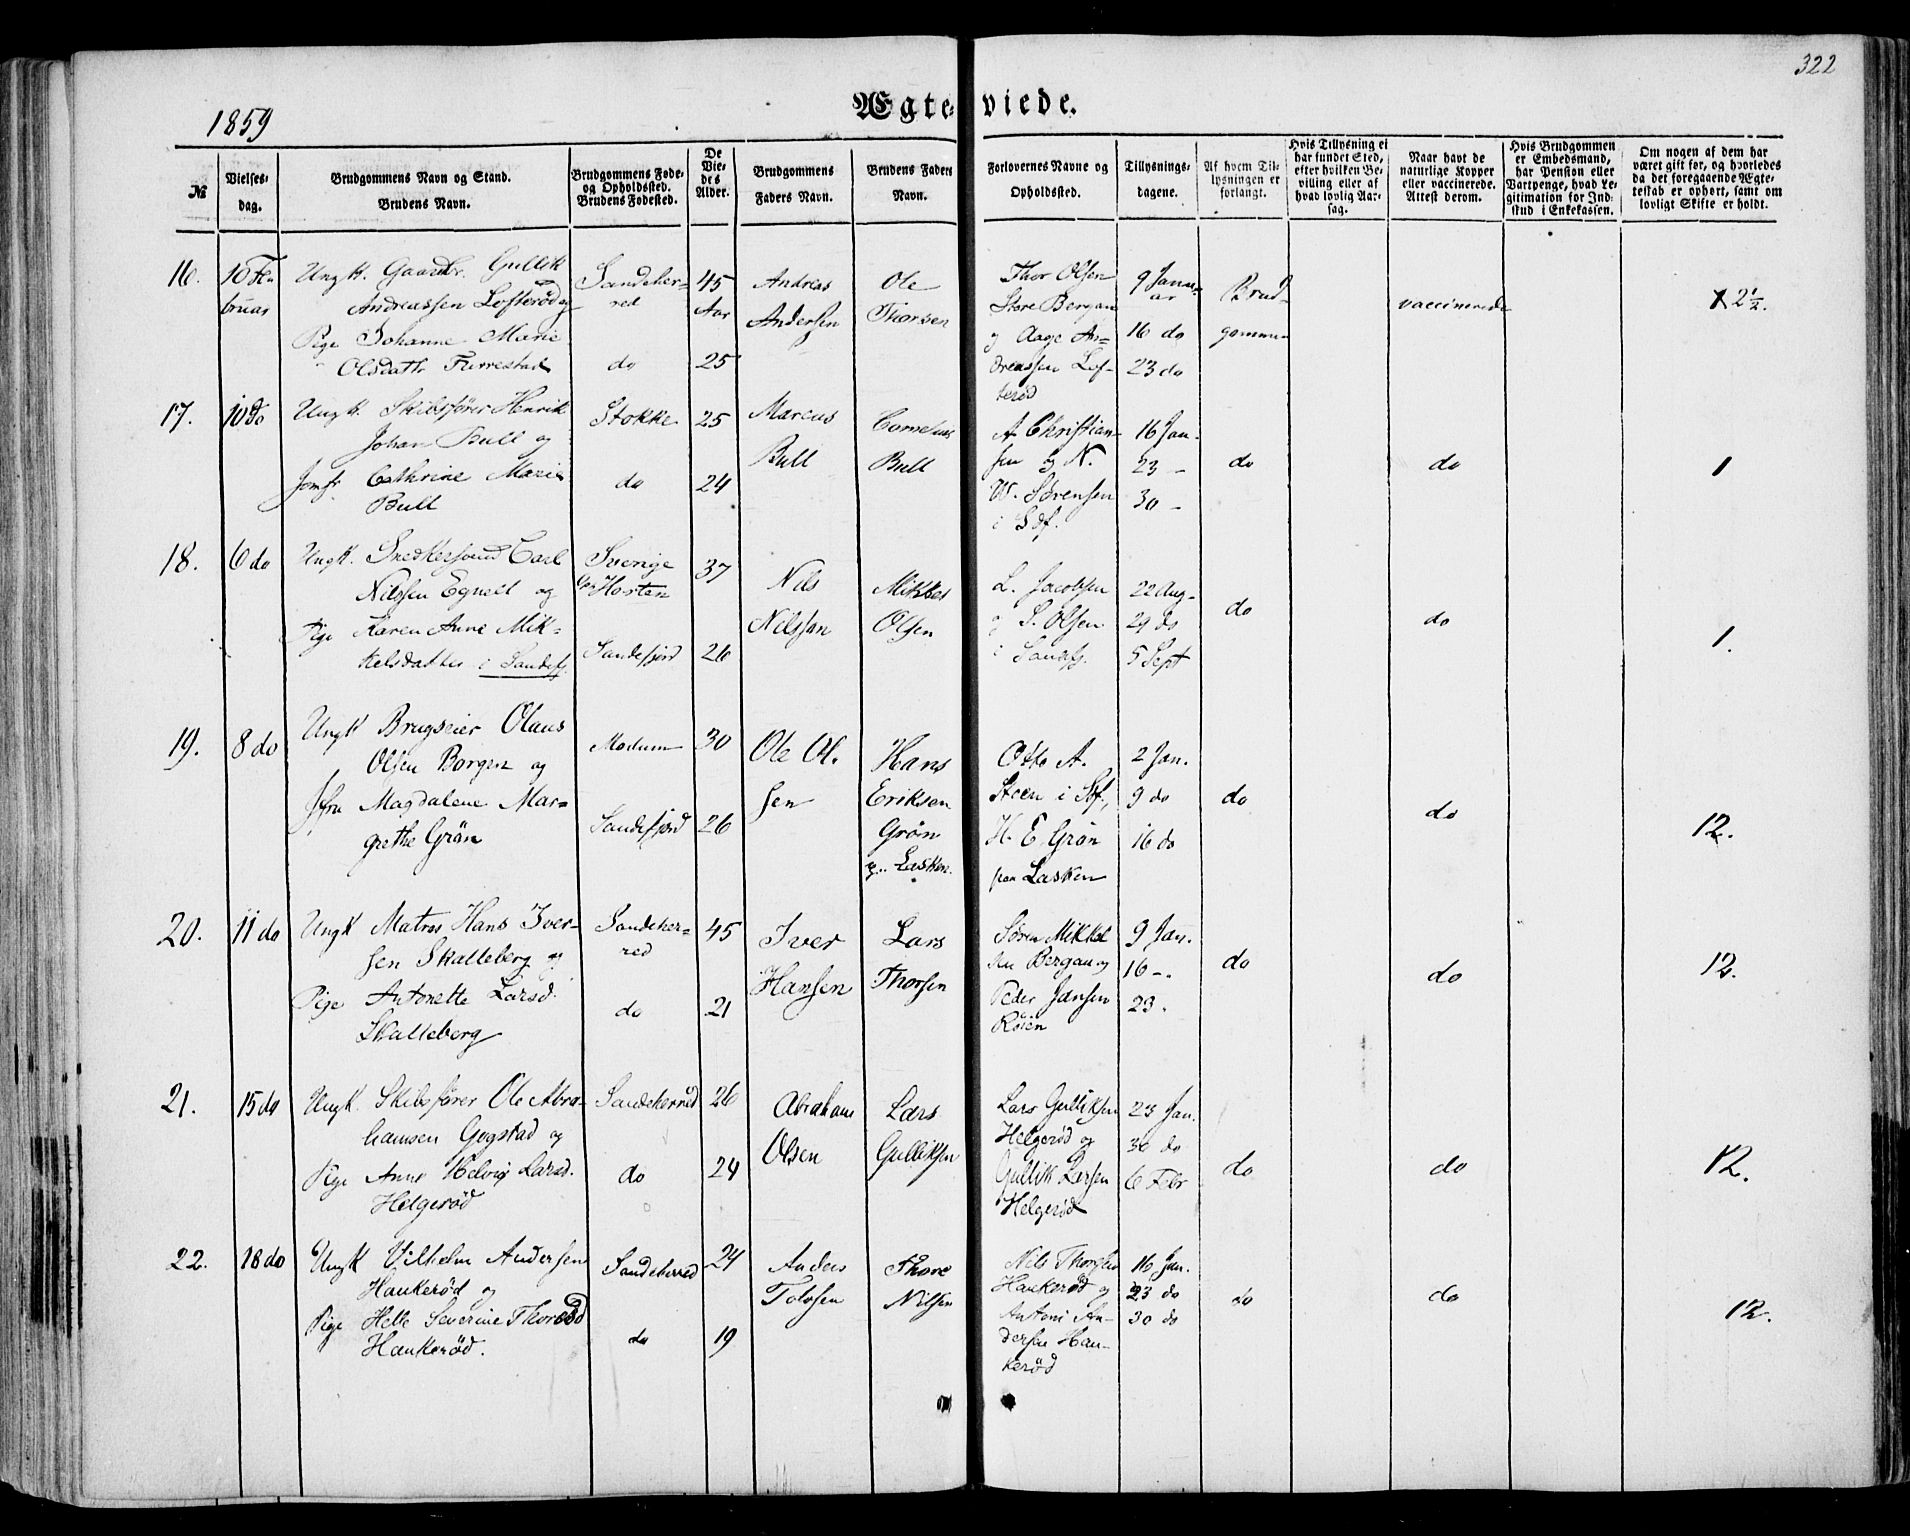 322
1859
Ægteviede.
№
Vielsesdag.
Brudgommens Navn og Stand.
Brudens Navn.
Brudgommens Føde- og Opholdssted.
Brudens Fødested.
De Viedes Alder.
Brudgommens Faders Navn.
Brudens Faders Navn.
Forlovernes Navne og Opholdssted.
Tillysningsdagene.
Af hvem Tillysningen er forlangt.
Hvis Tillysning ei har fundet Sted, efter hvilken Bevilling eller af hvad lovlig Aarsag.
Naar havt de naturlige Kopper eller vaccinerede. Attest derom.
Hvis Brudgommen er Embedsmand, har Pension eller Vartpenge, hvad Legitimation for Indskud i Enkekassen.
Om nogen af dem har været gift før, og hvorledes da det foregaaende Ægteskab er ophørt, samt om lovligt Skifte er holdt.
16. 10 Februar
Ungk. Gaardbr. Gullik
Andreassen Lofterød og
Pige Johanne Marie
Olsdattr Furrestad
Sandeherred
do
45 Aar
25
Andreas Andersen
Ole Thorsen
Thor Olsen
Store Bergan
og Aage Andreassen Lofterød
9 Januar
16 do
23 do
Brudgommen
vaccinerede
2½.
17. 10 do
Ungk. Skibsfører Henrik
Johan Bull og
Jomfr. Cathrine Marie
Bull
Stokke
do
25
24
Marcus Bull
Cornelius Bull
A Christiansen og N.
W. Sørensen
i Sdf.
16 Jan.
23 –
30 –
do
do
1
18. 6 do
Ungk. Snedkersvend Carl
Nilssen Egnell og
Pige Karen Anne Mikkelsdatter i Sandefj.
Sverige
Horten
Sandefjord
37
26
Nils Nilssen
Mikkel Olsen
L. Jacobsen
og S. Olsen
i Sandefj.
22 Aug.
29 do
5 Sept
do
do
1.
19. 8 do
Ungk Brugseier Olaus
Olsen Borgen og
Jfru Magdalene Margrethe Grøn
Modum
Sandefjord
30
26
Ole Olsen
Hans Eriksen
Grøn
Lasken.
Otto A.
Steen i Sdf.,
H. E Grøn
paa Lasken
2 Jan.
9 do
16 do
do
do
12.
20. 11 do
Ungk Matros Hans Iversen Skalleberg og
Pige Antonette Larsd.
Skalleberg
Sandeherred
do
45
21
Iver Hansen
Lars Thorsen
Søren Mikkelsen Bergan og
Peder Jansen
Røien
9 Jan.
16 –.
23.
do
do
12.
21. 15 do
Ungk. Skibsfører Ole Abrahamsen Gogstad og
Pige Anne Helvig Larsd.
Helgerød
Sandeherred
do
26
24
Abraham Olsen
Lars Gulliksen
Lars Gulliksen
Helgerød og
Gullik Larsen
Helgerød
23 Jan.
30 do
6 Febr
do
do
12.
22. 18 do
Ungk Vilhelm Andersen
Haukerød og
Pige Helle Severine Thoresd
Haukerød.
Sandeherred
do
24
19
Anders
Thore Nilsen
Nils Thorsen
Haukerød og
Antoni Andersen Haukerød
16 Jan.
23 do
30 do
do
do
12.